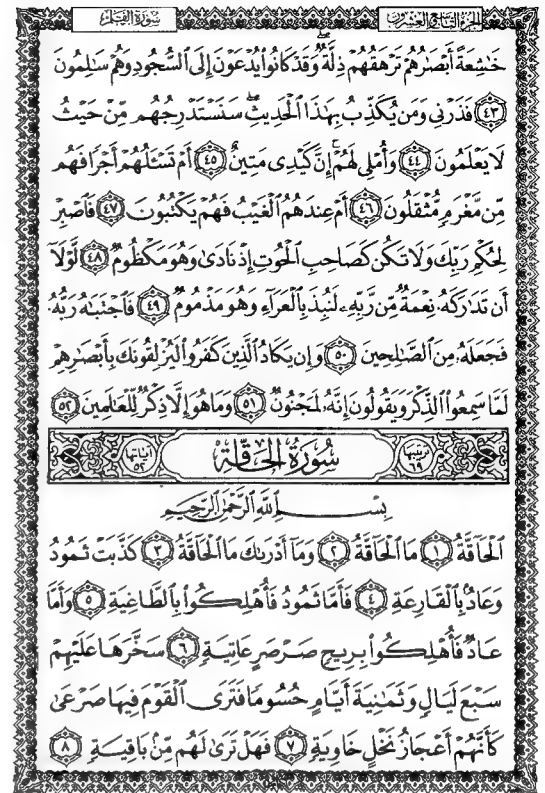 الجزء التاسع والعشرون
سورة القلم
خَٰشِعَةً أَبْصَٰرُهُمْ تَرْهَقُهُمْ ذِلَّةٌ ۖ وَقَدْ كَانُوا۟ يُدْعَوْنَ إِلَى ٱلسُّجُودِ وَهُمْ سَٰلِمُونَ
﴿٤٣﴾ فَذَرْنِى وَمَن يُكَذِّبُ بِهَٰذَا ٱلْحَدِيثِ ۖ سَنَسْتَدْرِجُهُم مِّنْ حَيْثُ
لَا يَعْلَمُونَ ﴿٤٤﴾ وَأُمْلِى لَهُمْ ۚ إِنَّ كَيْدِى مَتِينٌ ﴿٤٥﴾ أَمْ تَسْـَٔلُهُمْ أَجْرًا فَهُم
مِّن مَّغْرَمٍ مُّثْقَلُونَ ﴿٤٦﴾ أَمْ عِندَهُمُ ٱلْغَيْبُ فَهُمْ يَكْتُبُونَ ﴿٤٧﴾ فَٱصْبِرْ
لِحُكْمِ رَبِّكَ وَلَا تَكُن كَصَاحِبِ ٱلْحُوتِ إِذْ نَادَىٰ وَهُوَ مَكْظُومٌ ﴿٤٨﴾ لَّوْلَآ
أَن تَدَٰرَكَهُۥ نِعْمَةٌ مِّن رَّبِّهِۦ لَنُبِذَ بِٱلْعَرَآءِ وَهُوَ مَذْمُومٌ ﴿٤٩﴾ فَٱجْتَبَٰهُ رَبُّهُۥ
فَجَعَلَهُۥ مِنَ ٱلصَّٰلِحِينَ ﴿٥٠﴾ وَإِن يَكَادُ ٱلَّذِينَ كَفَرُوا۟ لَيُزْلِقُونَكَ بِأَبْصَٰرِهِمْ
لَمَّا سَمِعُوا۟ ٱلذِّكْرَ وَيَقُولُونَ إِنَّهُۥ لَمَجْنُونٌ ﴿٥١﴾ وَمَا هُوَ إِلَّا ذِكْرٌ لِّلْعَٰلَمِينَ ﴿٥٢﴾
ترتيبها ٦٩ سُورَةُ الحَاقَّةِ آياتها ٥٢
بِسْمِ ٱللَّهِ ٱلرَّحْمَٰنِ ٱلرَّحِيمِ
ٱلْحَآقَّةُ ﴿١﴾ مَا ٱلْحَآقَّةُ ﴿٢﴾ وَمَآ أَدْرَىٰكَ مَا ٱلْحَآقَّةُ ﴿٣﴾ كَذَّبَتْ ثَمُودُ
وَعَادٌۢ بِٱلْقَارِعَةِ ﴿٤﴾ فَأَمَّا ثَمُودُ فَأُهْلِكُوا۟ بِٱلطَّاغِيَةِ ﴿٥﴾ وَأَمَّا
عَادٌ فَأُهْلِكُوا۟ بِرِيحٍ صَرْصَرٍ عَاتِيَةٍ ﴿٦﴾ سَخَّرَهَا عَلَيْهِمْ
سَبْعَ لَيَالٍ وَثَمَٰنِيَةَ أَيَّامٍ حُسُومًا فَتَرَى ٱلْقَوْمَ فِيهَا صَرْعَىٰ
كَأَنَّهُمْ أَعْجَازُ نَخْلٍ خَاوِيَةٍ ﴿٧﴾ فَهَلْ تَرَىٰ لَهُم مِّنۢ بَاقِيَةٍ ﴿٨﴾